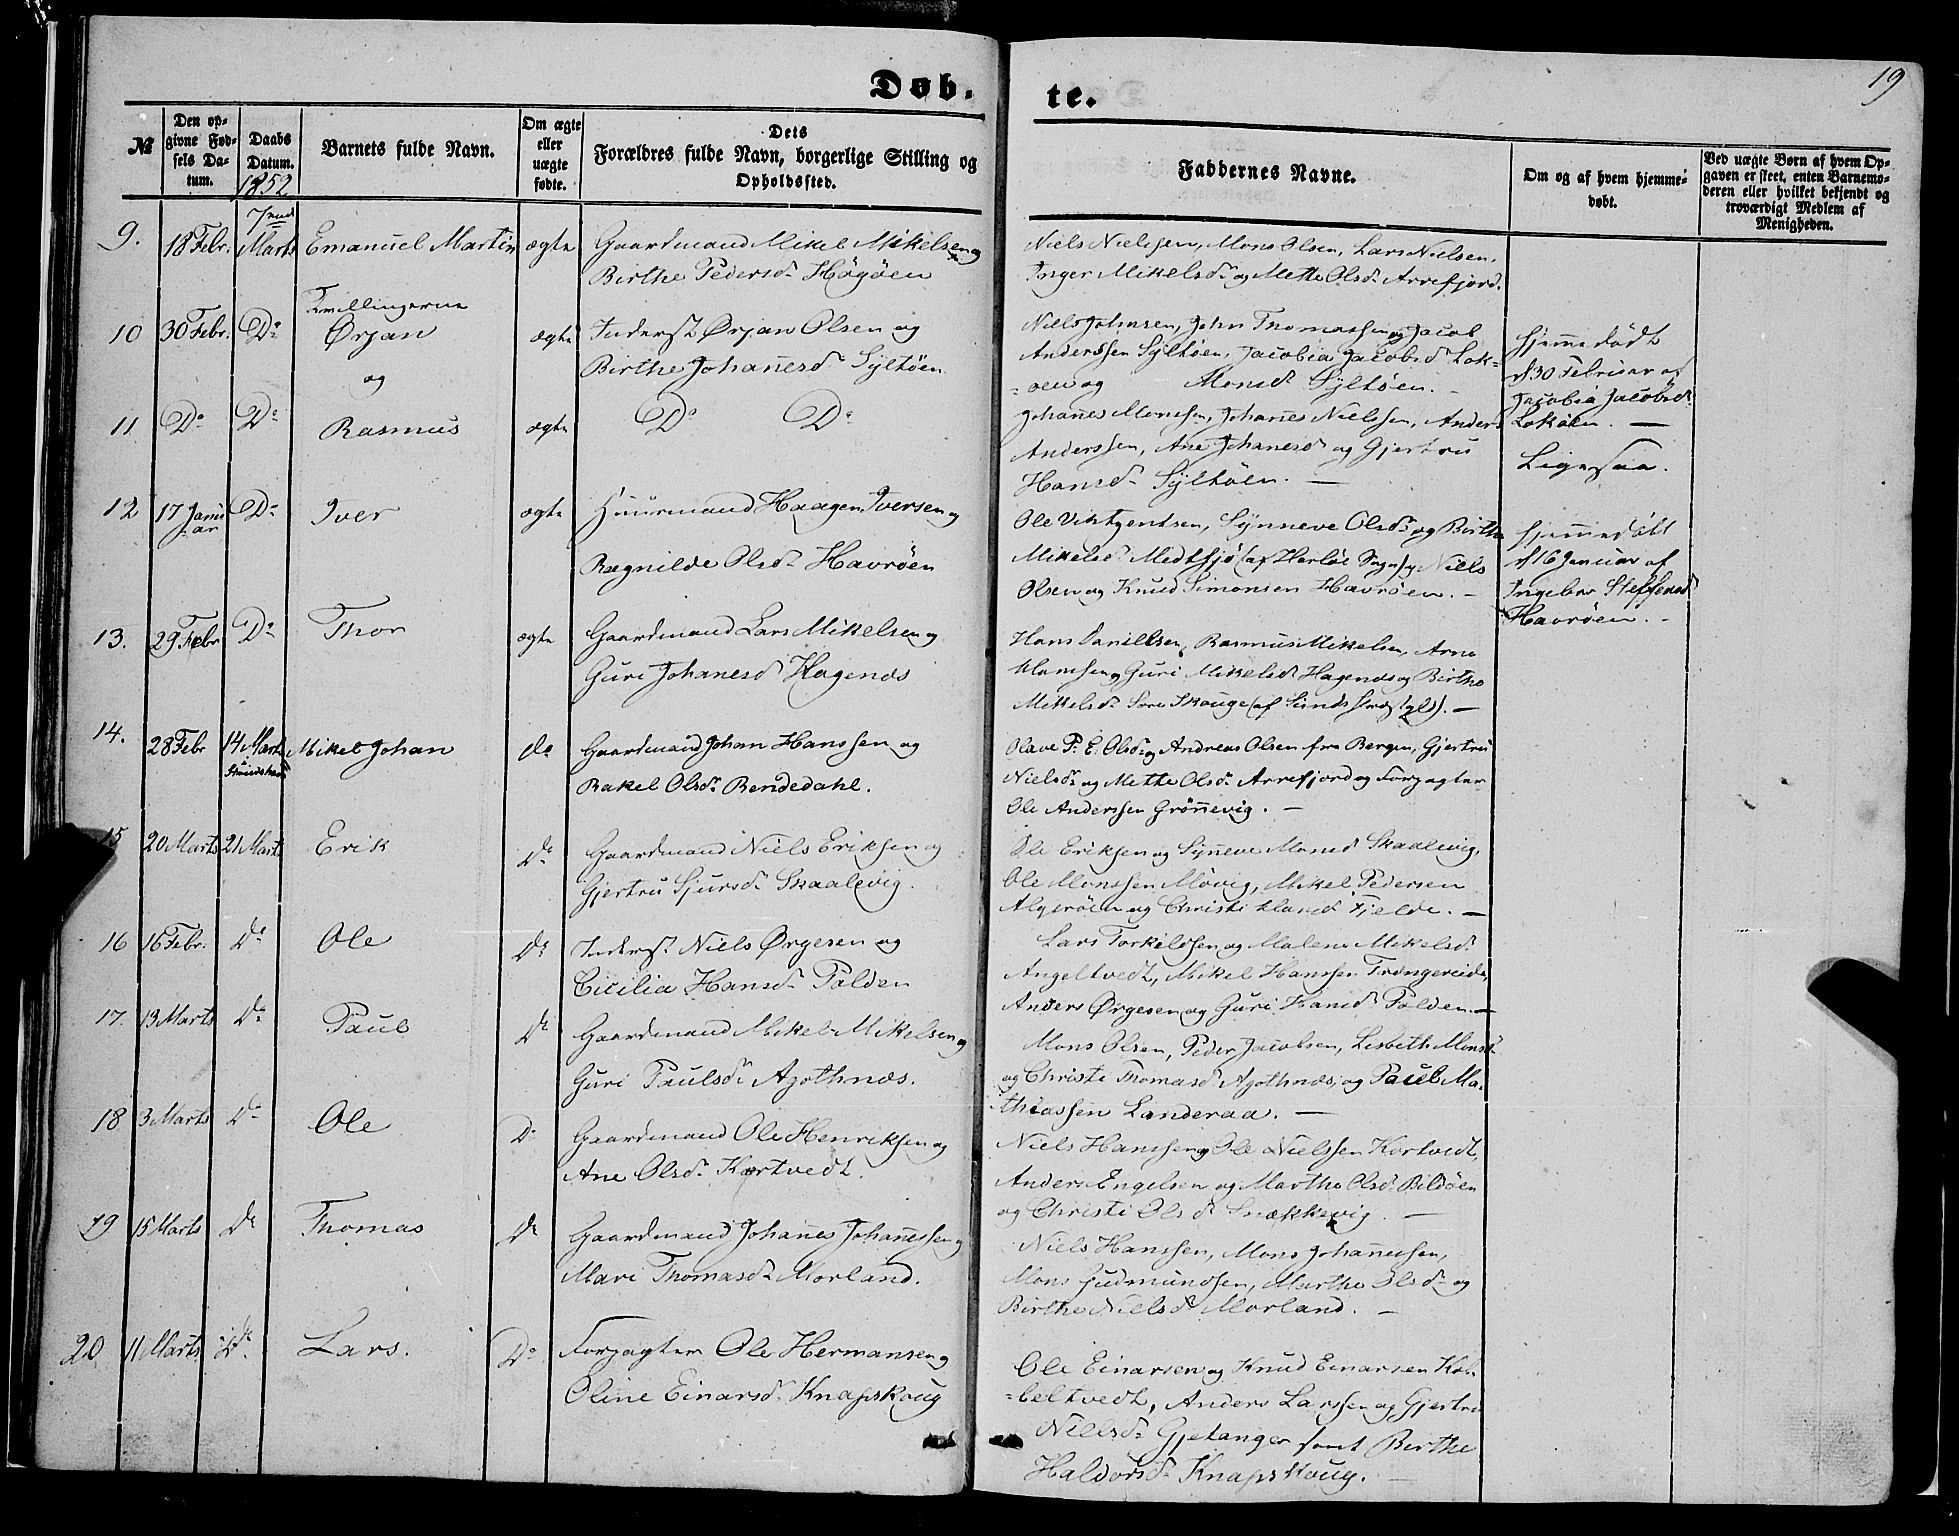 Døb.
te.
19
№
Den opgivne Fødsels Datum.
Daabs Datum.
1852
Barnets fulde Navn.
Om ægte eller uægte fødte.
Dets Forældres fulde Navn, borgerlige Stilling og Opholdssted.
Faddernes Navne.
Om og af hvem hjemmedøbt.
Ved uægte Børn af hvem Opgaven er skeet, enten Barnemoderen eller hvilket bekjendt og troværdigt Medlem af Menigheden.
9. 18 Febr. 7 Marts Emanuel Martin ægte Gaardmand Mikel Mikelsen og
Birthe Pedersdr Høgøen
Niels Nielssen, Mons Olsen, Lars Nielsen,
Inger Mikelsdr og Mette Olsdr Arrefjord.
Tvillingerne
10 30 Febr. Do Ørjan ægte Inderst Ørjan Olsen og
og
Birthe Johanesdr Syltøen
Niels Johnsen, John Thomassen og Jacob
Anderssen Syltøen, Jacobia Jacobsdr Lok=
=øen og Monsdr Syltøen. -
Hjemmedøbt
d 30 Februar af
Jacobia Jacobsdr
Lokøen. —
11 Do Do Rasmus ægte Do Do
Johanes Monssen, Johanes Nielssen, Anders
Anderssen, Ane Johanesdr og Gjertru
Hansdr Syltøen. —
Ligesaa.
12 17 Januar Do Iver ægte Huusmand Haagen Iversen og
Ragnilde Olsdr Havrøen
Ole Vintgentsen, Synneve Olsdr og Birthe
Mikelsdr Medthjø (af Herløe Sogn) og Niels
Olsen og Knud Simonsen Havrøen. -
Hjemmedøbt
d 16 Januar af
Ingebor Steffensdr
Havrøen. -
13. 29 Febr Do Thor ægte Gaardmand Lars Mikelsen og
Guri Johanesdr Hagenæs
Hans Danielsen, Rasmus Mikelsen, Arne
Hanssen og Guri Mikelsdr Hagenæs og Birthe
Mikelsdr Søre Skouge (af Sunds Præstgld). —
14. 28 Febr 14 Marts Mikel Johan do Gaardmand Johan Hanssen og
Rakel Olsdr Bendedahl.
Olave P. E. Olsdr og Andreas Olsen fra Bergen, Gjertru
Nielsdr og Mette Olsdr Arrefjord og Forpagter
Ole Anderssen Grønnevig. —
15 20 Marts 21 Marts Erik Do Gaardmand Niels Eriksen og
Gjertru Sjursdr Skaalevig.
Ole Eriksen og Synneve Monsd Skaalevig,
Ole Monssen Møvig, Mikel Pedersen
Algerøen og Christi Hansd Fjelde. —
16 16 Febr. Do Ole Do Inderst Niels Ørgesen og
Cicilia Hansdr Polden
Lars Torkildsen og Malene Mikelsdr
Angeltvedt, Mikel Hanssen Trengereide,
Anders Ørgesen og Guri Hansdr Polden. —
17. 13 Marts Do Paul Do Gaardmand Mikel Mikelsen og
Guri Paulsdr Agothnæs.
Mons Olsen, Peder Jacobsen, Lisbeth Monsdr
og Christi Thomasdr Agothnæs, og Paul Ma=
thiassen Landeraa. —
18 3 Marts Do Ole Do Gaardmand Ole Henriksen og
Ane Olsdr Kørtvedt.
Niels Hanssen og Ole Nielssen Kørtvedt,
Anders Engelsen og Marthe Olsdr Bildøen
og Christi Olsdr Snækkevig. —
19 15 Marts Do Thomas Do Gaardmand Johanes Johanessen og
Mari Thomasdr Morland.
Niels Hanssen, Mons Johannessen,
Mons Gudmundsen, Marthe Olsdr og
Birthe Nielsdr Morland. —
20 11 Marts Do Lars. Do Forpagter Ole Hermansen og
Oline Einarsdr Knapskoug
Ole Einarsen og Knud Einarsen Kob=
=beltvedt, Anders Larssen og Gjertru
Nielsdr Gjetanger samt Birthe
Haldorsdr Knapskoug. —